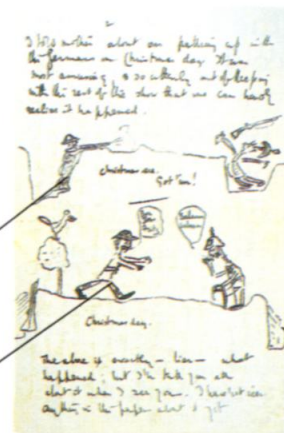 2
I told mother about our palling up with
the Germans on Christmas day. It was
most amusing, & so utterly out of keeping
with the rest of the show that one can hardly
realise it happened.
Christmas eve.
Got 'im!
Christmas day.
The above is exactly – here – what
happened; but I'll tell you all
about it when I see you. I haven't seen
anything in the paper about it yet